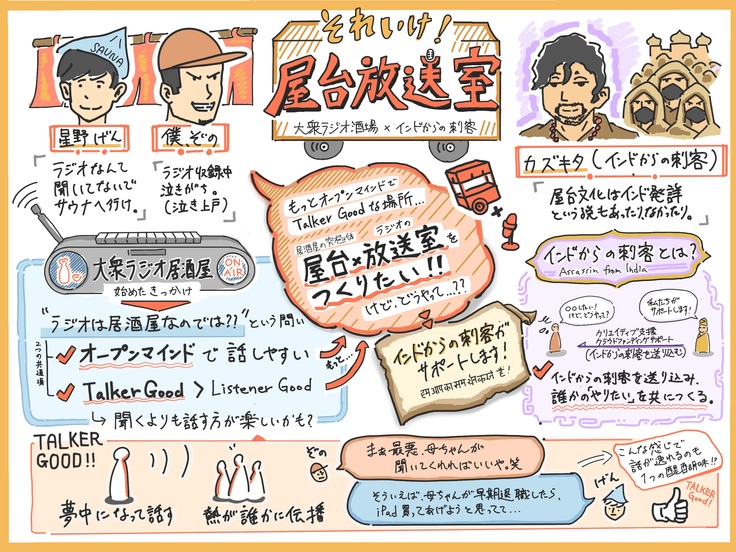 それいけ!
屋台放送室
大衆ラジオ酒場×インドからの刺客
SAUNA
星野げん
僕、ぞの
ラジオなんて
聞いてないで
サウナへ行け。
ラジオ収録中
泣きがち。
(泣き上戸)
カズキタ(インドからの刺客)
屋台文化はインド発祥
という説もあったりなかったり。
大衆ラジオ居酒屋
ON AIR
始めたきっかけ
"ラジオは居酒屋なのでは??"という問い
2つの共通項
オープンマインドで話しやすい
Talker Good > Listener Good
聞くよりも話す方が楽しいかも?
もっと…
もっとオープンマインドで
Talker Goodな場所…
居酒屋の究極は
ラジオの
屋台×放送室を
つくりたい!!
けど、どうやって…??
インドからの刺客が
サポートします!
インドからの刺客とは?
Assassin from India
〇〇したい!
けど、どうやって?
私たちが
サポートします!
クリエイティブ支援
クラウドファンディングサポート
(インドからの刺客を送り込む)
インドからの刺客を送り込み、
誰かの「やりたい」を共につくる。
TALKER
GOOD!!
夢中になって話す
熱が誰かに伝播
ぞの
まぁ最悪、母ちゃんが
聞いてくれればいいや。笑
そういえば、母ちゃんが早期退職したら、
iPad買ってあげようと思ってて…
げん
こんな感じで
話が逸れるのも
1つの醍醐味!?
TALKER
Good!